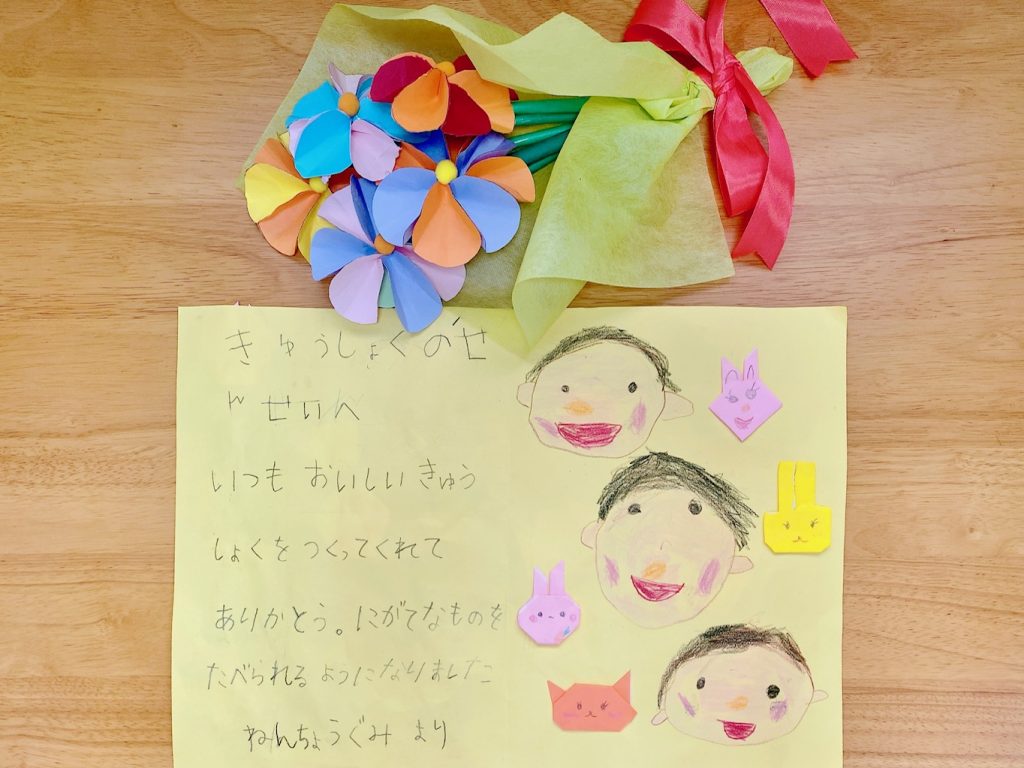 きゅうしょくのせ
んせいへ
いつも おいしいきゅう
しょくを つくってくれて
ありかとう。にがてなものを
たべられるようになりました
ねんちょうぐみ より